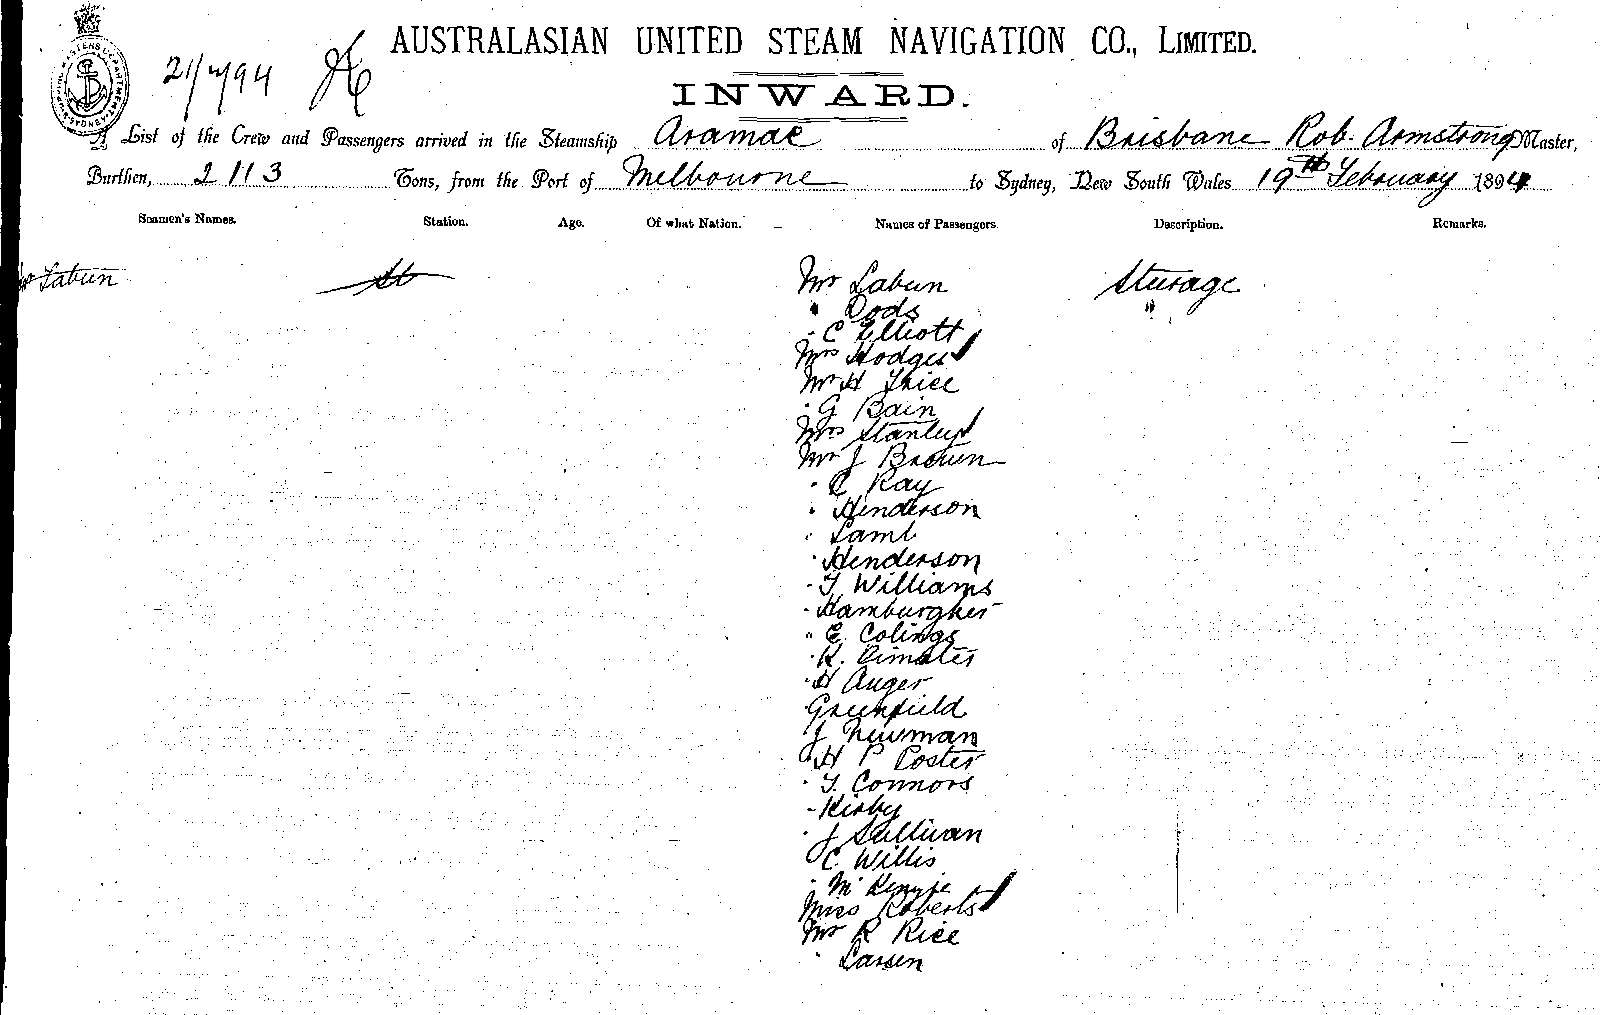 AUSTRALASIAN UNITED STEAM NAVIGATION CO., LIMITED.
21/2/94
INWARD.
A List of the Crew and Passengers arrived in the Steamship Aramac of Brisbane Rob. Armstrong Master,
Burthen, 2113 Tons, from the Port of Melbourne to Sydney, New South Wales 19th February 1894
Seamen's Names. Station. Age. Of what Nation. Names of Passengers. Description. Remarks.
Labun St Mr Labun Steerage
" Dods "
" C Elliott
Mrs Hodges
Mr H Trice
" G Bain
Mrs Stanley
Mr J Brown
" C Ray
" Henderson
" Lamb
" Henderson
" T Williams
" Hamburgher
" E. Colings
" R.
" H Auger
Greenfield
J Newman
" H P Coster
" T. Connors
" Kirby
" J Sullivan
C Willis
" McKenzie
Miss Roberts
Mr R Rice
" Larsen